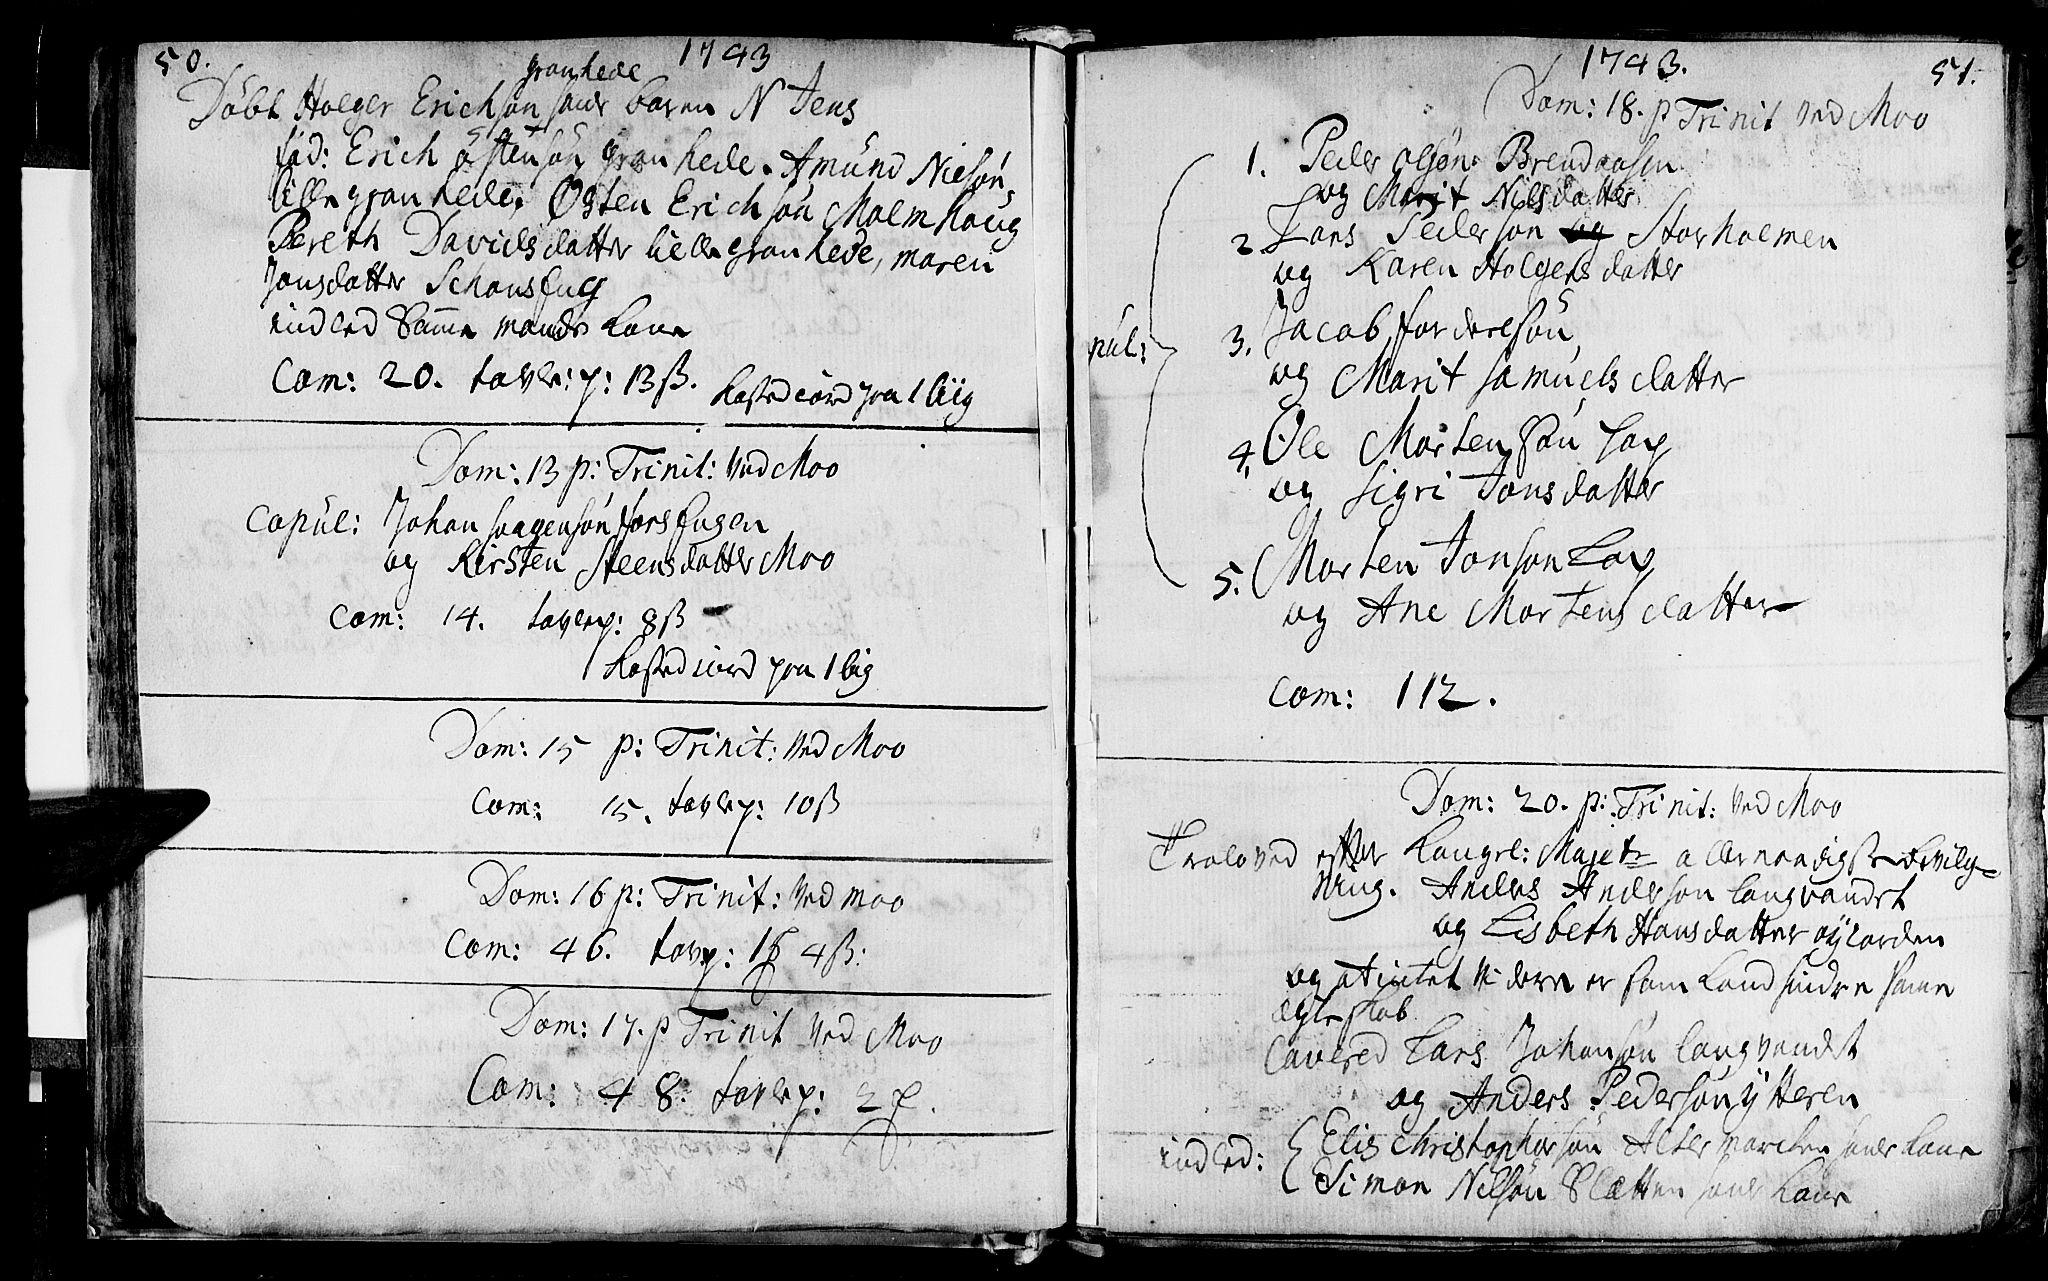 50. 1743
granhede
Döbt Holger Erichsøn hans baren N Jens
fad: Erich östensøn granhede. Amund Nielsøn
lille granhede, Østen Erichsøn Molmhaug
Pereth Davidsdatter lille granhede, maren
Jonsdatter Schonsfug
indled Samme mands kone
Com: 20. tavlep: 13ß. kasted iord paa 1 liig
Dom: 13 p: Trinit: Ved Moo
Copul: Johan haagensøn forsfugen
og Kirsten Steensdatter Moo
Com: 14. tavlep: 8ß
kasted iord paa 1 liig
Dom: 15 p: Trinit: Ved Moo
Com: 15. tavlep: 10ß
Dom: 16 p: Trinit: Ved moo
Com: 46. tavp: 1 4ß:
Dom: 17. p Trinit Ved Moo
Com: 48. tavlep: 2
1743. 51.
Dom: 18. p Trinit Ved Moo
1. Peder olsøn Brendaasen
og Marit Nilsdatter
2 Lars Pedersøn og Storholmen
og Karen Holgersdatter
pul:
3. Jacob fordelsøn
og Marit Samuels datter
4. Ole Mortensøn Lap
og Sigri Jonsdatter
5. Morten Jonson Lap
og Ane Mortens datter
Com: 112.
Dom: 20. p: Trinit: Ved Moo
Troloved efter Kongel: Majets allernaadigste bevilg=
ning. Anders Anderson langvandet
og Lisbeth Hansdatter øyiorden
og at intet videre er som kand hindre
ægteskab
Cavered Lars Johansøn langvandet
og Anders Pedersøn ytteren
indled: Elis Christophersøn Altermarchen hans kone
Simon Nilsøn Slætten hans kone